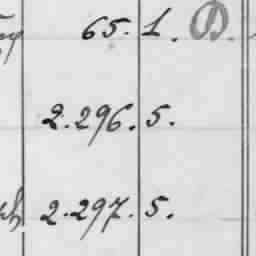 65. 1. D.
2.296. 5.
2.297. 5.